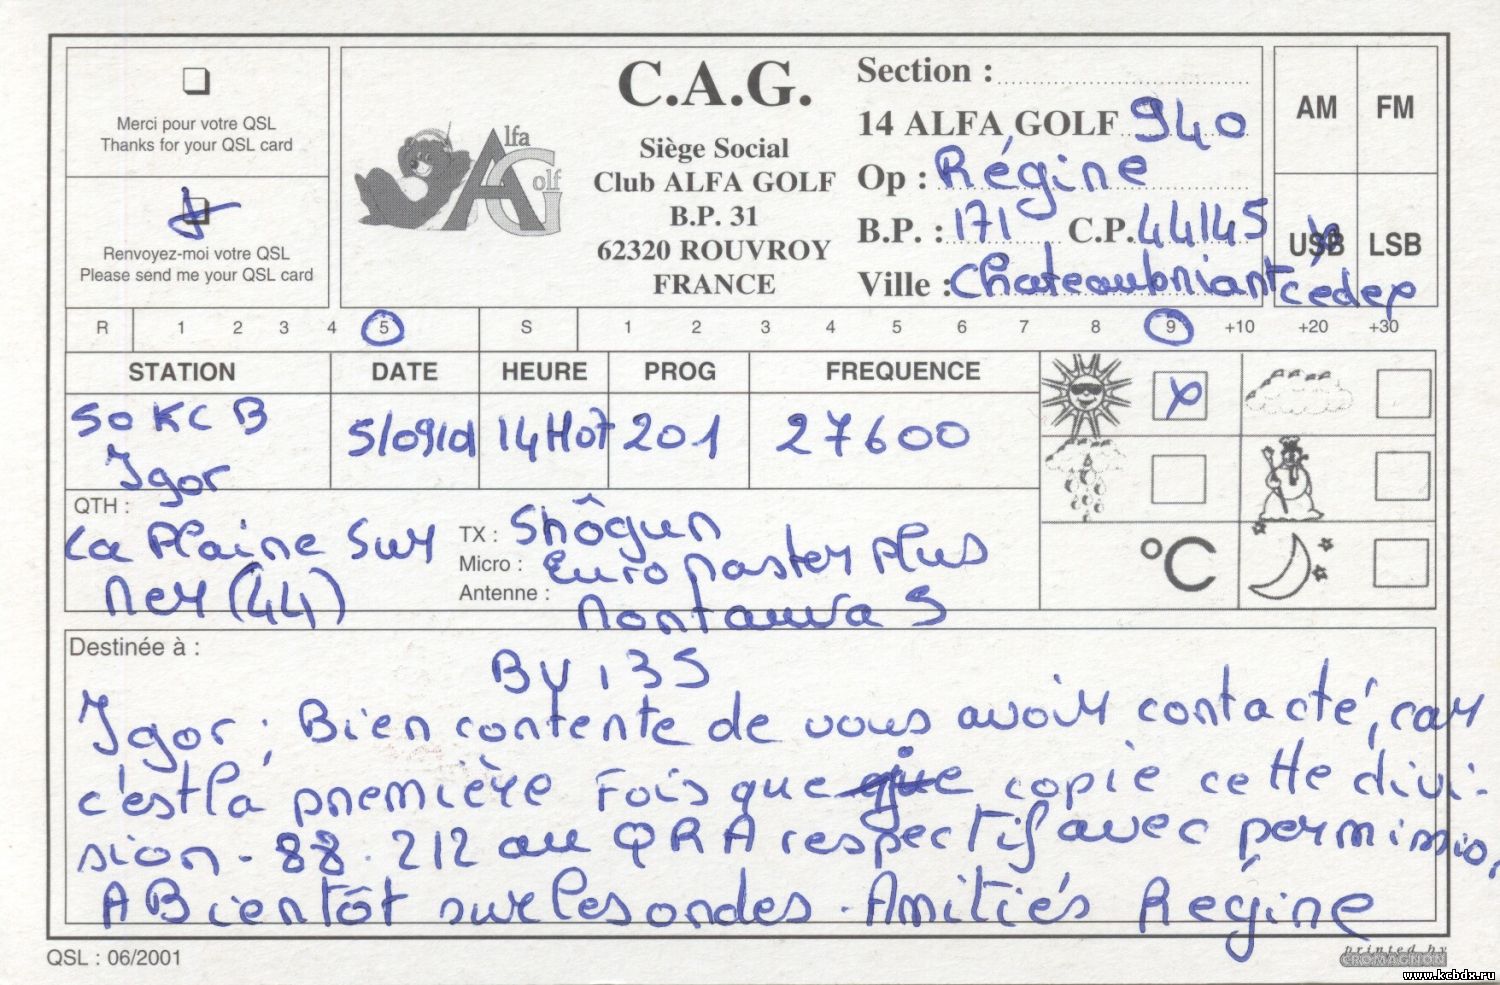 Merci pour votre QSL
Thanks for your QSL card
Renvoyez-moi votre QSL
Please send me your QSL card
Alfa
Golf
C.A.G.
Siège Social
Club ALFA GOLF
B.P. 31
62320 ROUVROY
FRANCE
Section :
14 ALFA GOLF 940
Op : Régine
B.P. : 171 C.P. 44145
Ville : Chateaubriant cédex
AM FM
USB LSB
R 1 2 3 4 5 S 1 2 3 4 5 6 7 8 9 +10 +20 +30
STATION DATE HEURE PROG FREQUENCE
50 KC B
Igor
5/09/01 14H07 201 27600
QTH :
La Plaine Sur
Mer (44)
TX : Shôgun
Micro : Euro Master Plus
Antenne : Montauva 5
°C
Destinée à :
BV 135
Igor ; Bien contente de vous avoir contacté, car
c'est la première Fois que copie cette divi-
sion - 88 . 212 au QRA respectif avec permimio,
A Bientôt sur les ondes . Amitiés Régine
QSL : 06/2001
printed by
CROMAGNON
www.kcbdx.ru